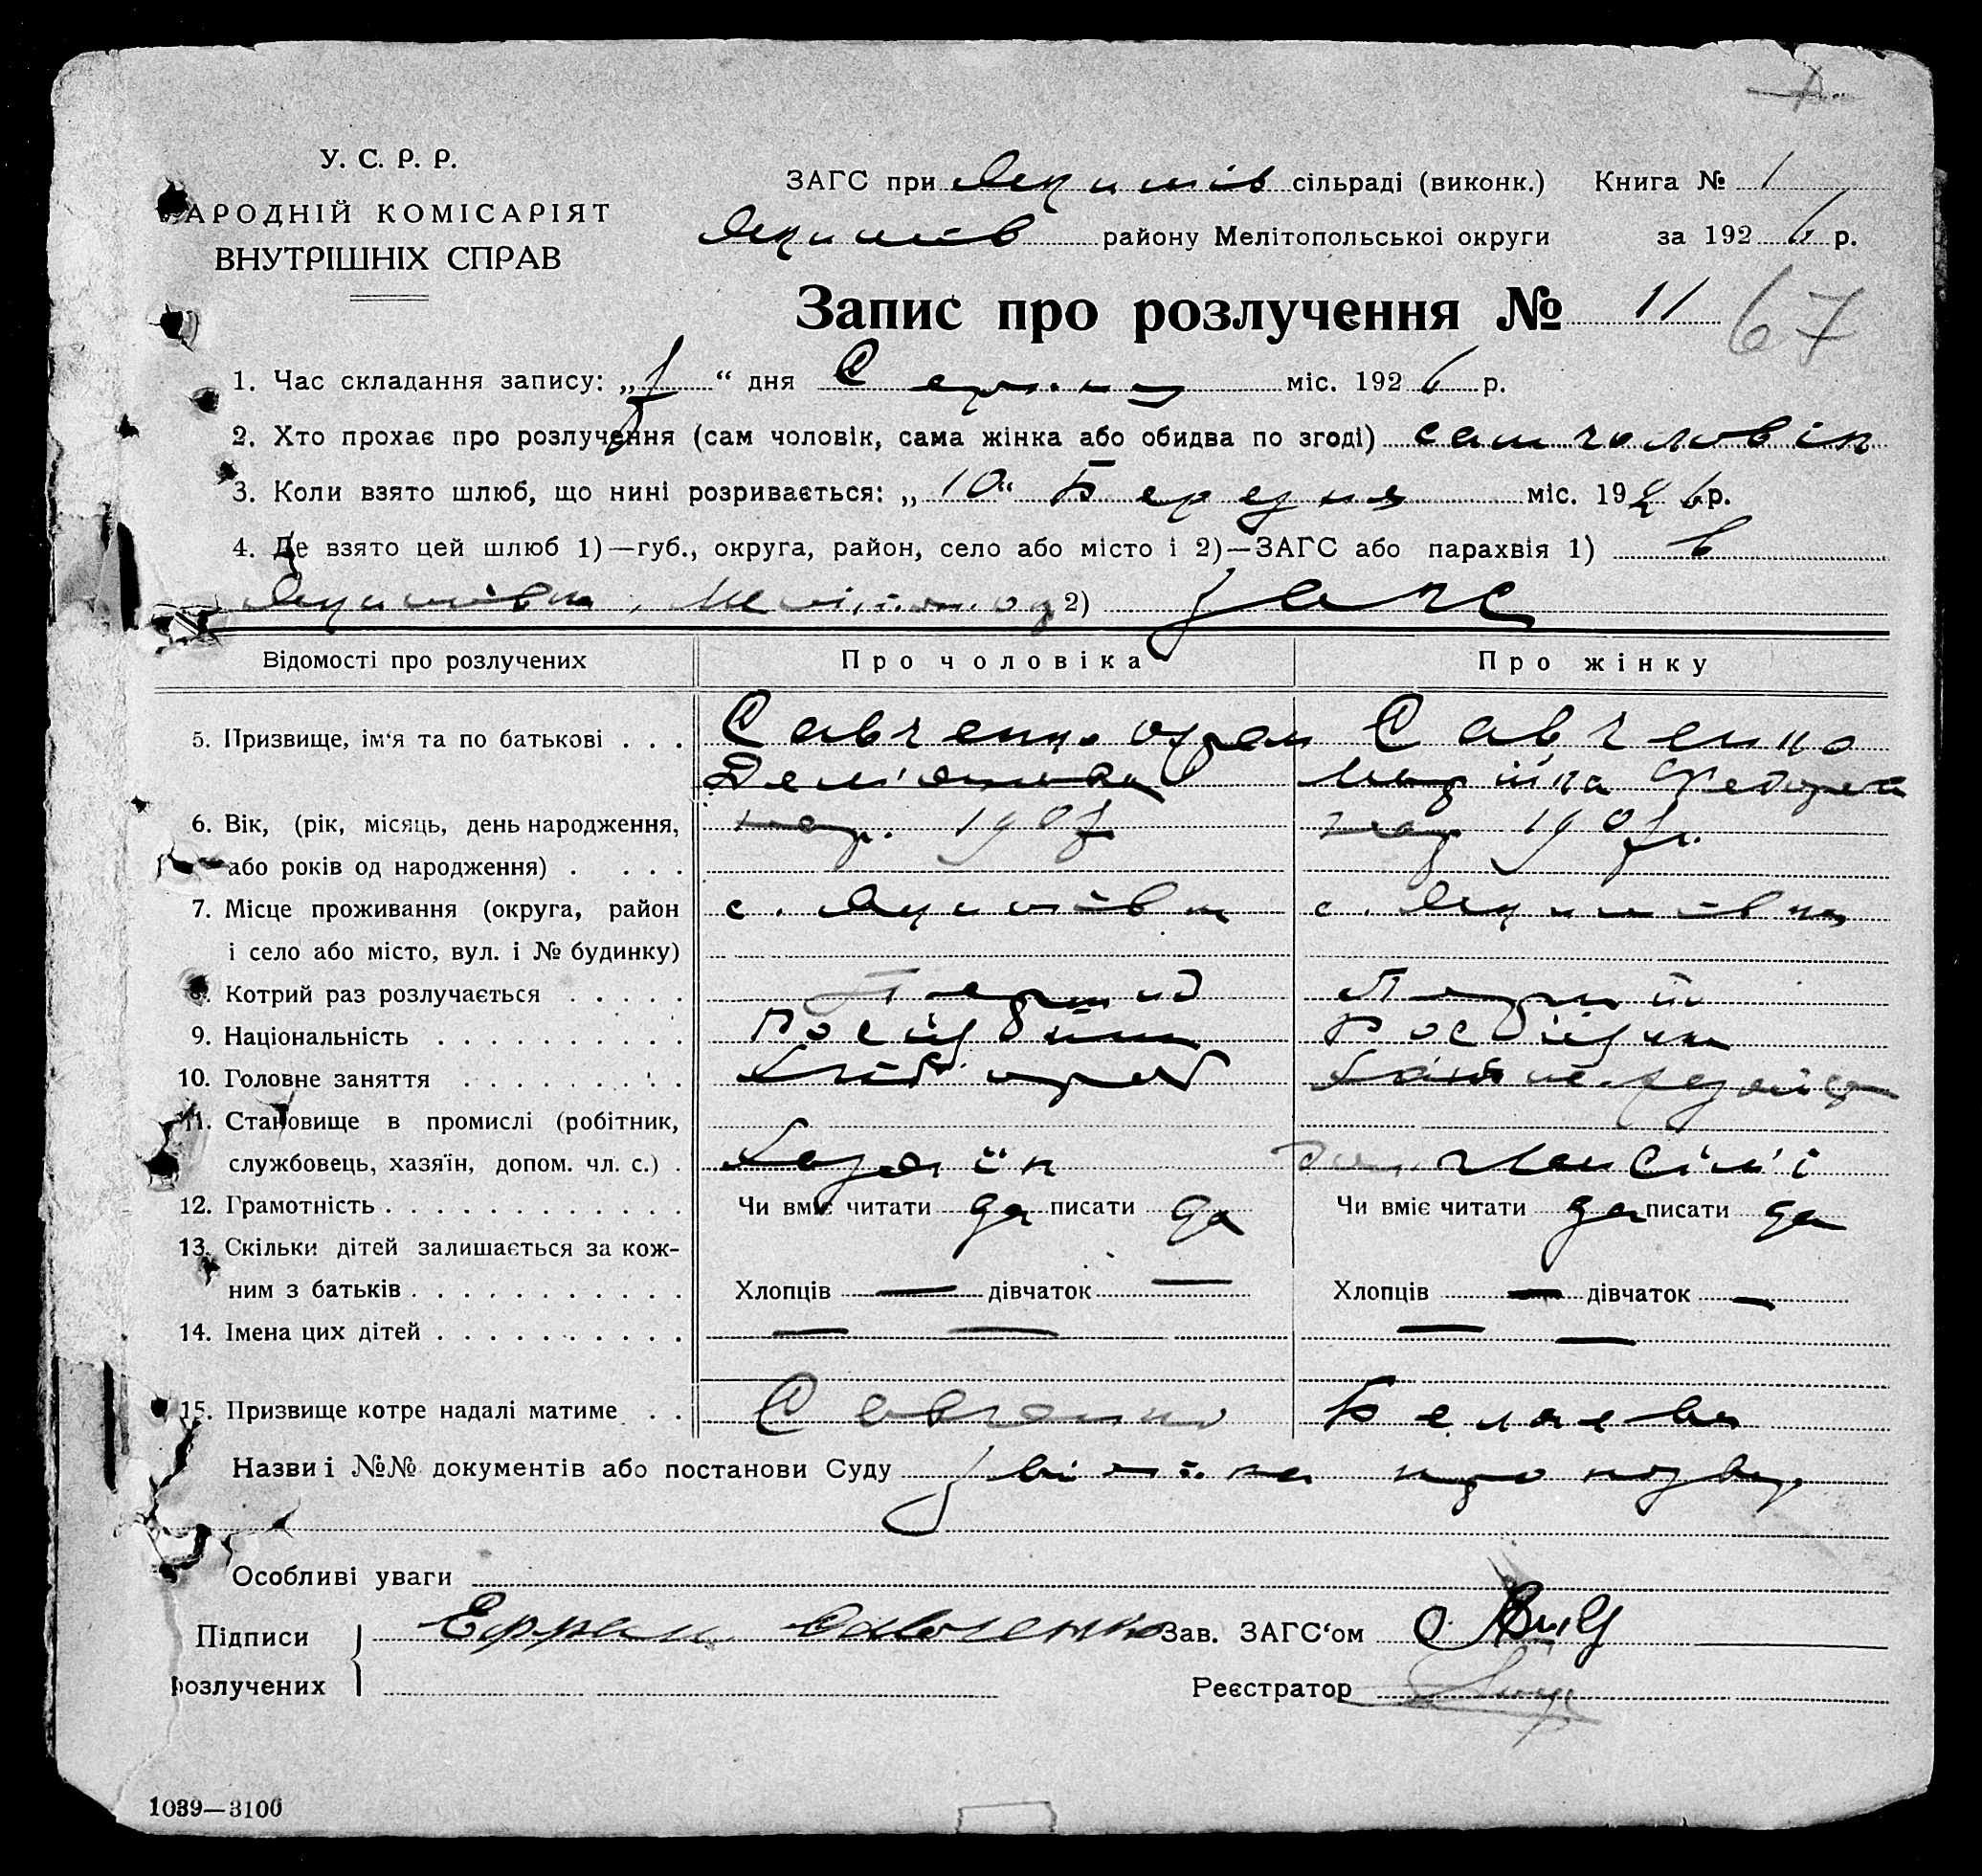 У. С. Р. Р.
АРОДНІЙ КОМІСАРІЯТ
ВНУТРІШНІХ СПРАВ
ЗАГС при Якимів сільраді (виконк.) Книга № 1
Якимів району Мелітопольськоі округи за 1926 р.
Запис про розлучення № 11 67
1. Час складання запису: „ “ дня Серпня міс. 1926 р.
2. Хто прохає про розлучення (сам чоловік, сама жінка або обидва по згоді) сам чоловік
3. Коли взято шлюб, що нині розривається: „10“ Березня міс. 1926 р.
4. Де взято цей шлюб 1)—губ., округа, район, село або місто і 2)—ЗАГС або парахвія 1) в
Якимівка, 2) Загс
Відомості про розлучених Про чоловіка Про жінку
5. Призвище, ім‘я та по батькові . . . Савченко Савченко
6. Вік, (рік, місяць, день народження, нар. 1907 нар 1907 р.
або років од народження) . . . .
7. Місце проживання (округа, район с. Якимівка с. Якимівка
і село або місто, вул. і № будинку)
8. Котрий раз розлучається . . . . . Перший Перший
9. Національність . . . . . . . . . .
10. Головне заняття . . . . . . . . . Хлібороб
11. Становище в промислі (робітник,
службовець, хазяїн, допом. чл. с.) . Хазяїн член сім'ї
12. Грамотність . . . . . . . . . . . . Чи вміє читати да писати да Чи вміє читати да писати да
13. Скільки дітей залишається за кож-
ним з батьків . . . . . . . . . . . Хлопців — дівчаток — Хлопців — дівчаток —
14. Імена цих дітей . . . . . . . . . . — — — —
15. Призвище котре надалі матиме . . Савченко Беляева
Назви і №№ документів або постанови Суду
Особливі уваги
Підписи Ефрем Савченко Зав. ЗАГС‘ом
розлучених Реєстратор
1039—3100